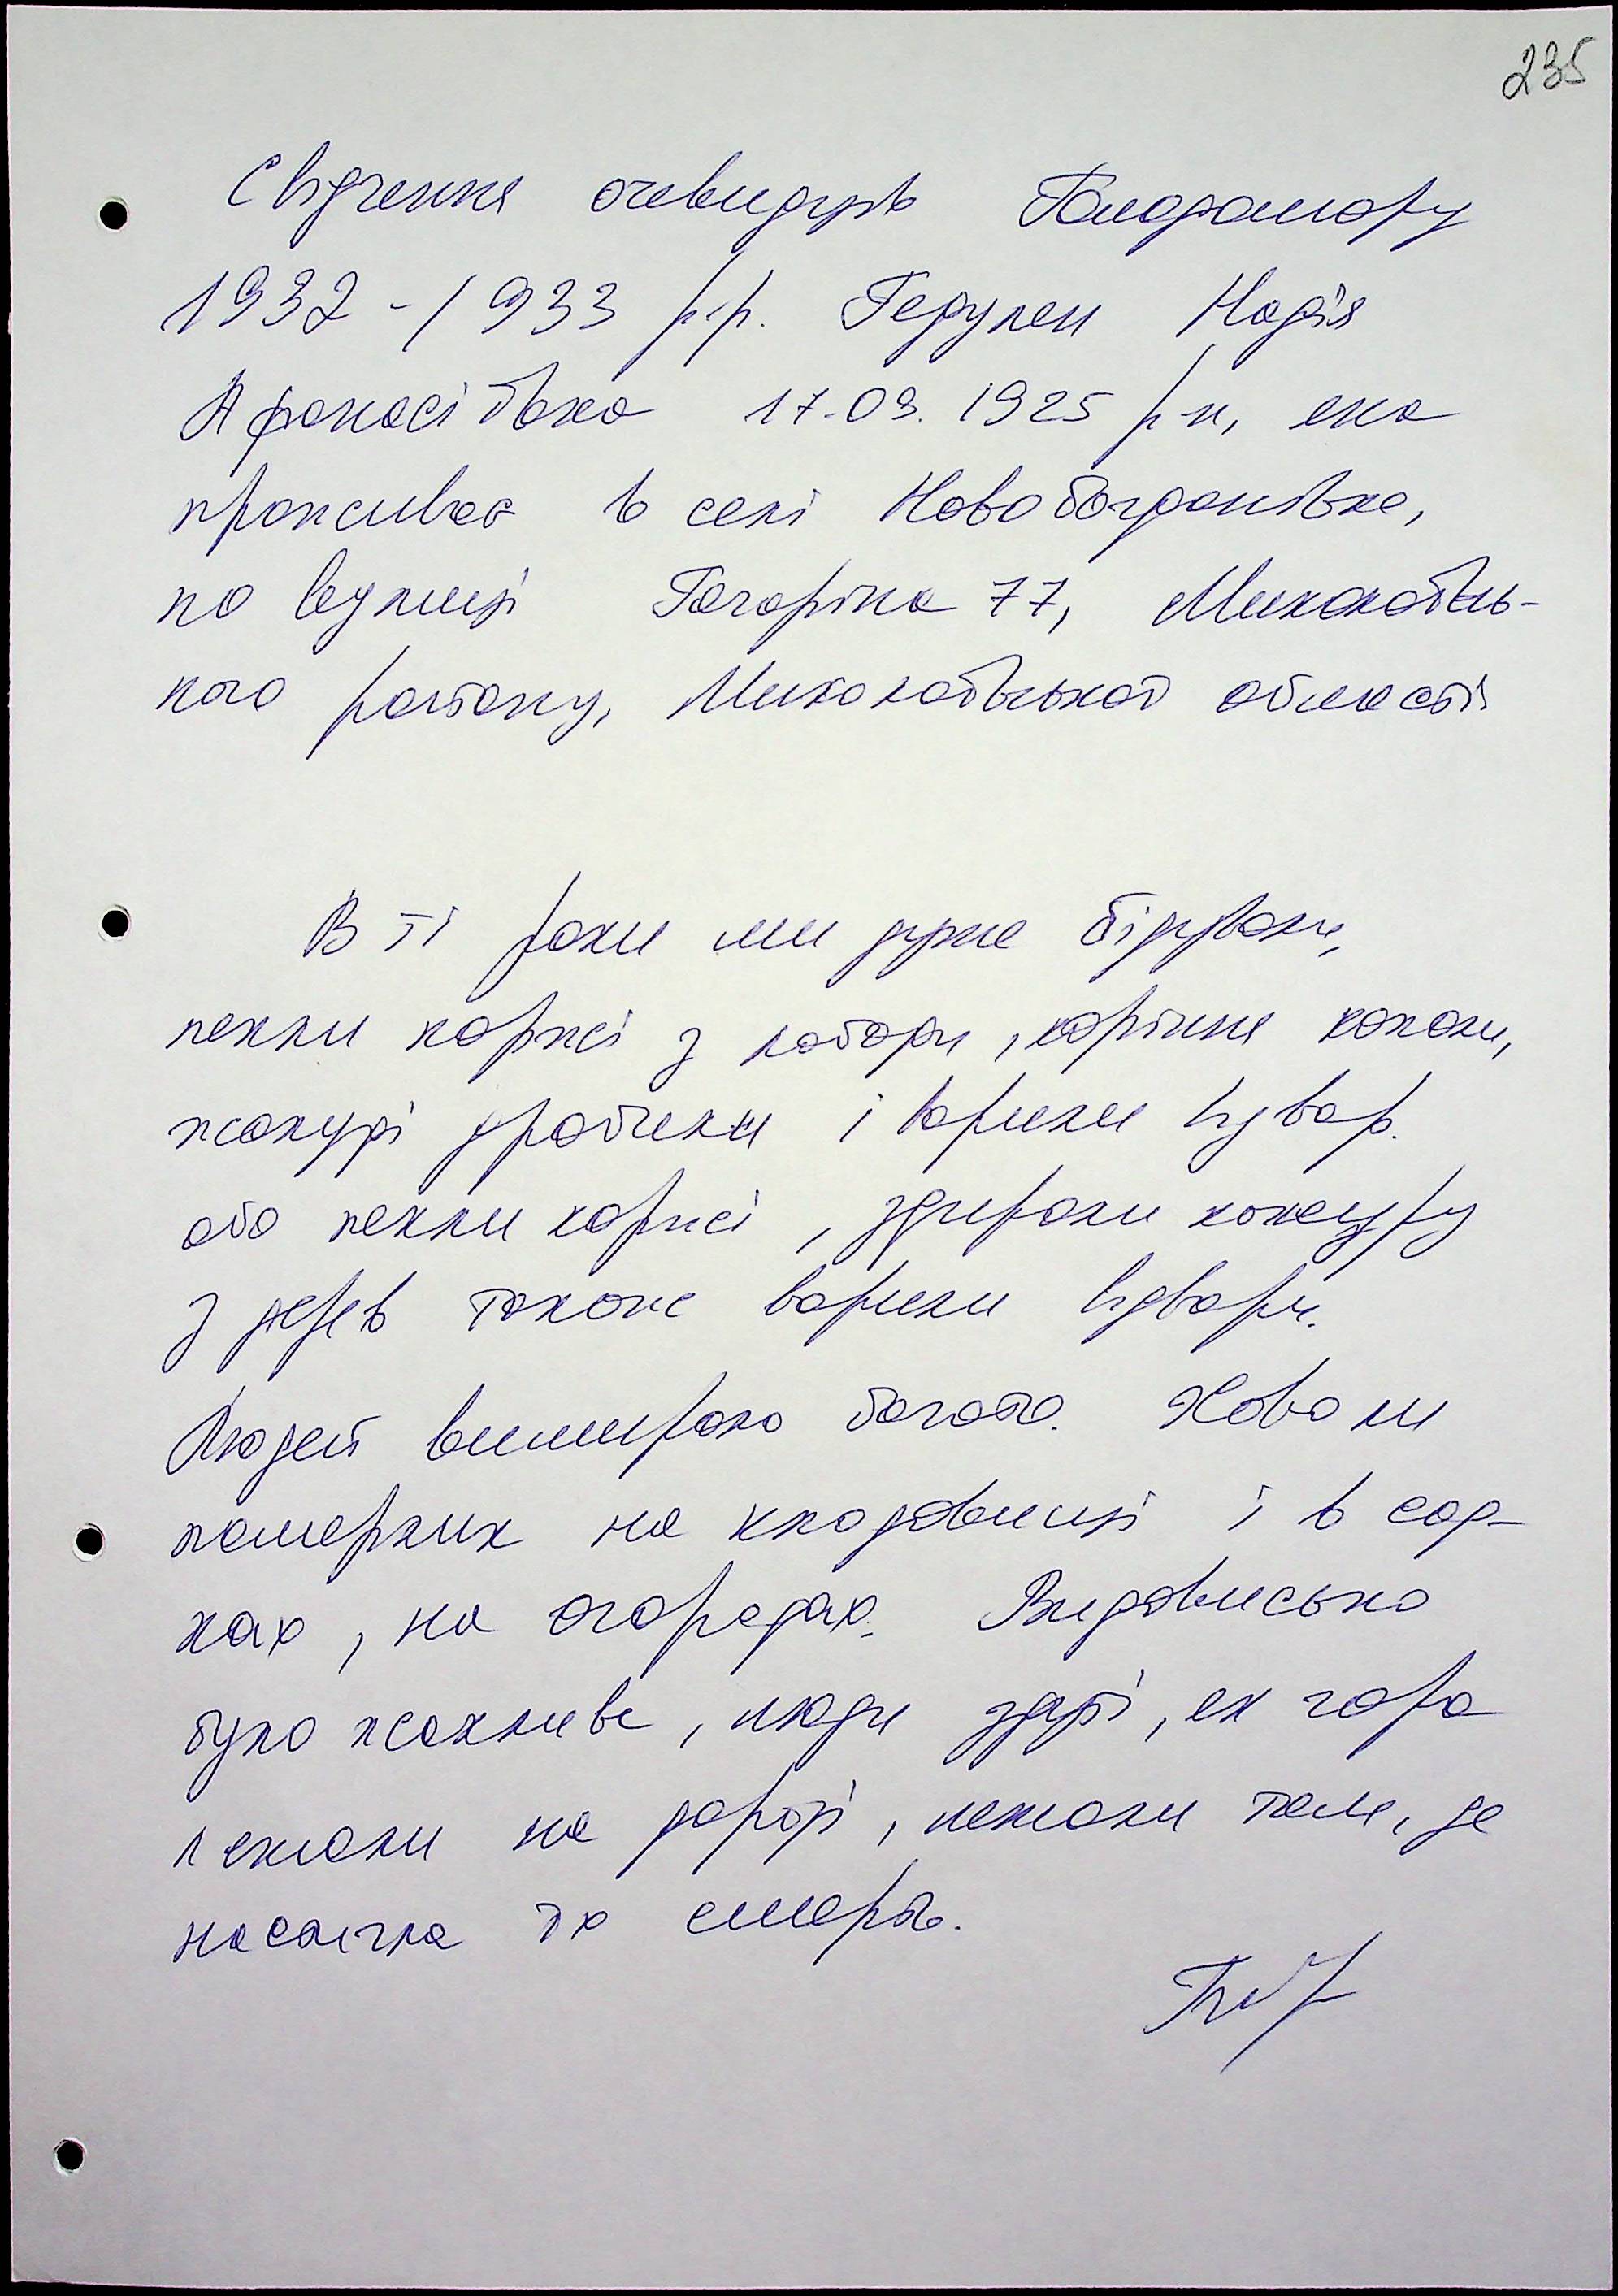 235
Свідчення очевидців Голодомору
1932-1933 р.р. Гедулен Надія
Афанасіївна 17.09.1925 р-н, яка
проживає в селі Новобогданівка,
по вулиці Гагаріна 77, Миколаївсь-
кого району, Миколаївської області
В ті роки ми дуже бідували,
пекли коржі з лободи, коріння копали,
жолуді дробили і варили відвар.
або пекли коржі, здирали кожуру
з дерев також варили відвари.
Людей вимирало багато. Ховали
померлих на кладовищі і в сад-
ках, на огородах. Видовисько
було жахливе, люди здуті, як гора
лежали на дорозі, лежали там, де
настигла їх смерть.